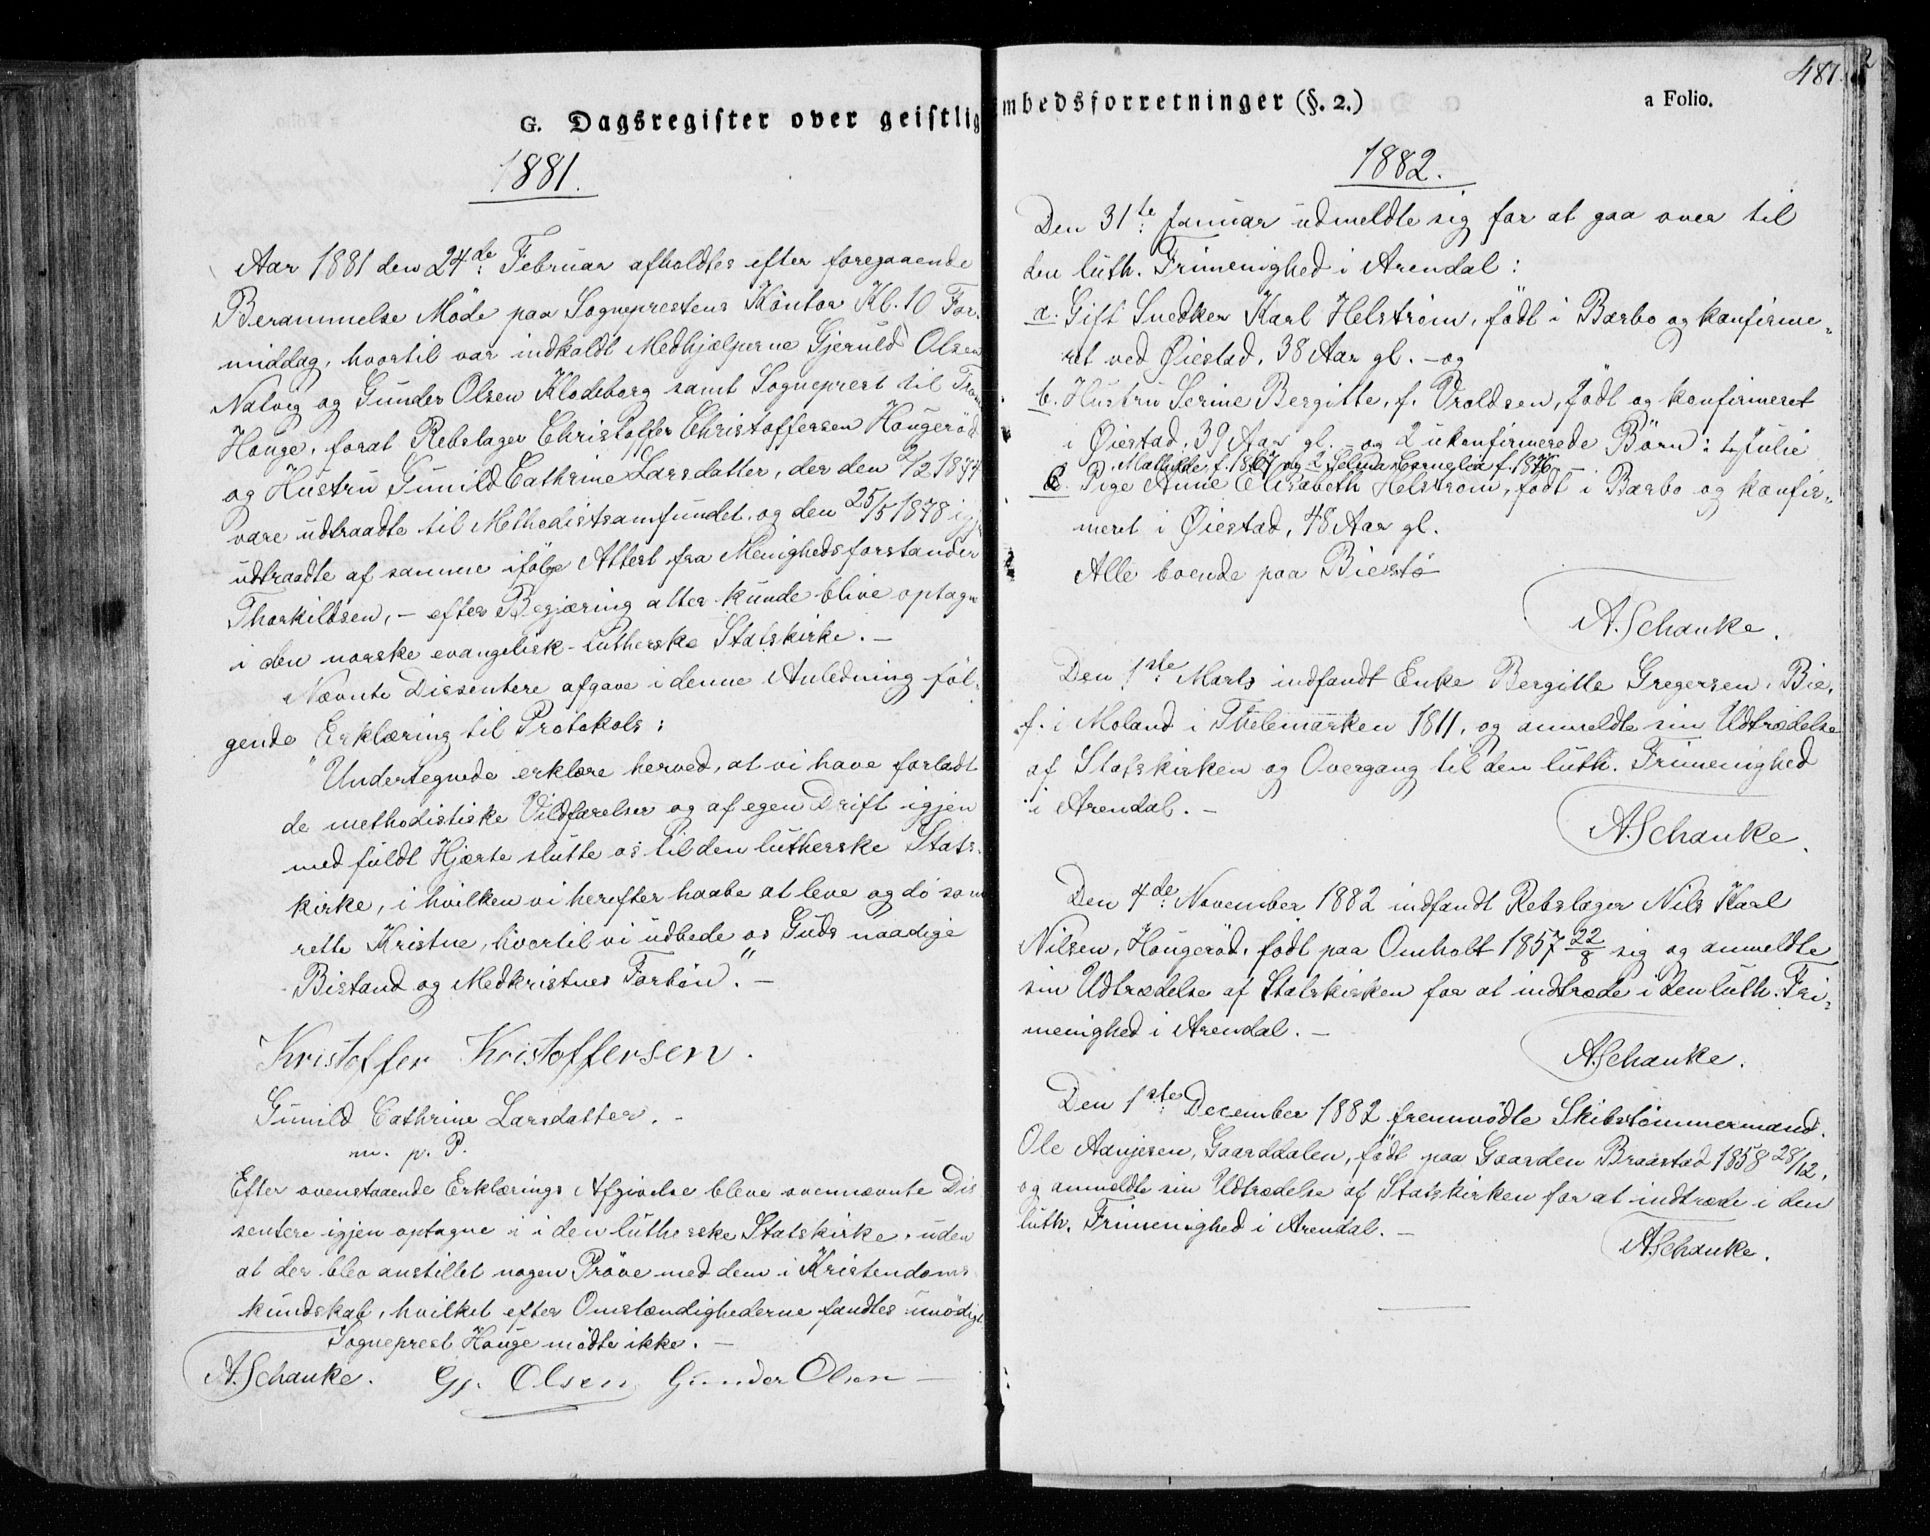 G. Dagsregister over geistlig
1881.
Aar 1881 den 24de Februar afholdtes efter foregaaende
Berammelse Møde paa Sogneprestens Kontor Kl. 10 For-
middag, hvortil var indkaldt Medhjælperne Gjeruld Olsen
Natvig og Gunder Olsen Klodeborg samt Sogneprest til
Houge, forat Rebslager Christoffer Christoffersen Hougerød
og Hustru Gunild Cathrine Larsdatter, der den 2/2 1874
vare udtraadte til Methodistsamfundet, og den 25/5 1878
udtraadte af samme ifølge Attest fra Menighedsforstander
Thorkildsen, – efter Begjæring atter kunde blive optagne
i den norske evangelisk-lutherske Statskirke. –
Nævnte Dissentere afgave i denne Anledning føl-
gende Erklæring til Protokols:
"Undertegnede erklære herved, at vi have forladt
de methodistiske Vildfarelser og af egen Drift igjen
med fuldt Hjerte slutte os til den lutherske Stats-
kirke, i hvilken vi herefter haabe at leve og dø som
rette Kristne, hvortil vi udbede os Guds naadige
Bistand og Medkristnes Forbøn". –
Kristoffer Kristoffersen.
Gunild Cathrine Larsdatter. –
m. p. P.
Efter ovenstaaende Erklærings Afgivelse bleve ovennævnte Dis
sentere igjen optagne i i den lutherske Statskirke, uden
at der blev anstillet nogen Prøve med dem i Kristendoms
kundskab, hvilket efter Omstændighederne fandtes unødigt
Sogneprest Houge mødte ikke. –
A. Schanke. Gj. Olsen Gunder Olsen
487
mbedsforretninger (§. 2.) a Folio.
1882.
Den 31te Januar udmeldte sig for at gaa over til
den luth. Frimenighed i Arendal:
a. Gift Snedker Karl Helstrøm, født i Barbo og konfirme-
ret ved Øiestad, 38 Aar gl. – og
b. Hustru Serine Bergitte, f. Vroldsen, født og konfirmeret
i Øiestad, 39 Aar gl. – og 2 ukonfirmerede Børn: 1, Julie
Mathilde f. 1867 og 2 Selma Cornelia f. 1876 –
c. Pige Anne Elisabeth Helstrøm, født i Barbo og konfir-
meret i Øiestad, 48 Aar gl.
Alle boende paa Biestø
A. Schanke.
Den 1ste Marts indfandt Enke Bergitte Gregersen, Bie,
f. i Moland i Thelemarken 1811, og anmeldte sin Udtrædelse
af Statskirken og Overgang til den luth. Frimenighed
i Arendal. –
A. Schanke.
Den 4de November 1882 indfandt Rebslager Nils Karl
Nilsen, Hougerød, født paa Omholt 1857 22/8 sig og anmeldte
sin Udtrædelse af Statskirken for at indtræde i den luth. Fri-
menighed i Arendal. –
A. Schanke.
Den 1ste December 1882 fremmødte Skibstømmermand
Ole Aanjesen, Gaarddalen, født paa Gaarden Braastad 1858 28/12,
og anmeldte sin Udtrædelse af Statskirken for at indtræde i den
luth. Frimenighed i Arendal. –
A. Schanke.